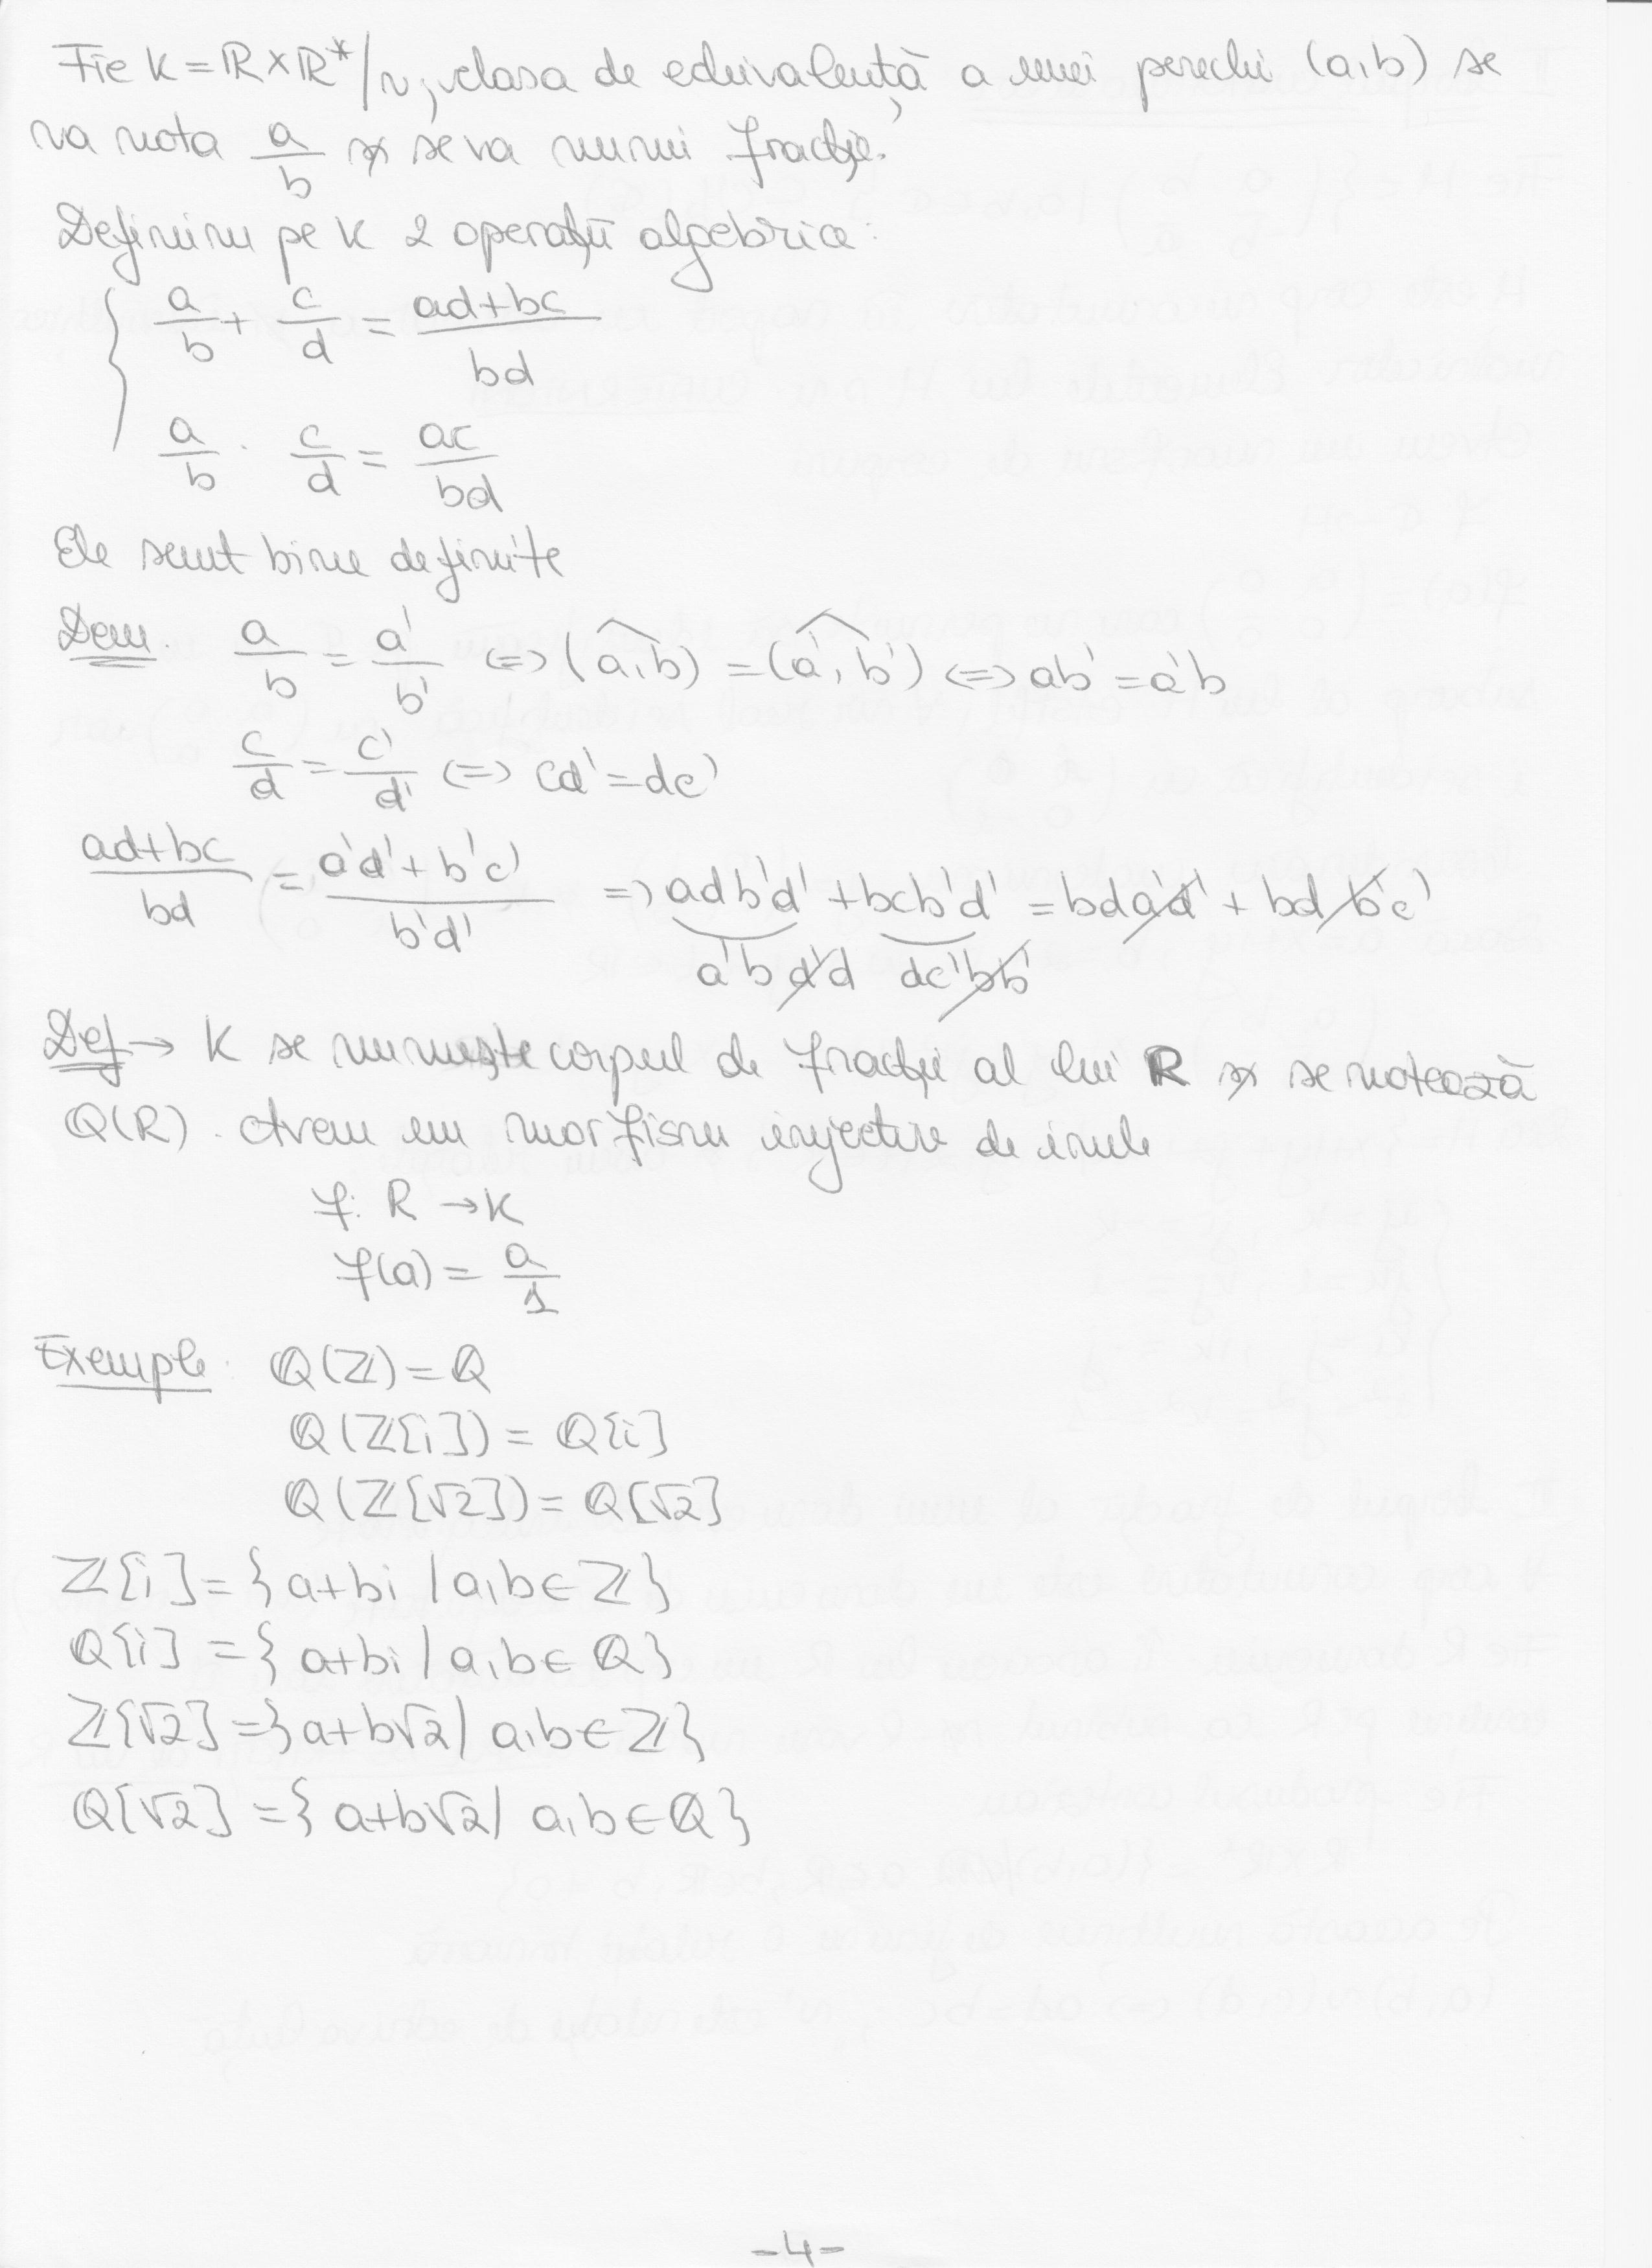 Fie K = R×R*/~, clasa de echivalență a unei perechi (a,b) se
va nota a/b și se va numi fracție.
Definim pe K 2 operații algebrice:
a/b + c/d = (ad+bc)/bd
a/b · c/d = ac/bd
Ele sunt bine definite
Dem. a/b = a'/b' <=> (a,b)^ = (a',b')^ <=> ab' = a'b
c/d = c'/d' <=> cd' = dc'
(ad+bc)/bd = (a'd'+b'c')/b'd' => adb'd' + bcb'd' = bda'd' + bdb'c'
a'bd'd dc'bb'
Def → K se numește corpul de fracții al lui R și se notează
Q(R). Avem un morfism injectiv de inele
f: R → K
f(a) = a/1
Exemple: Q(ℤ) = ℚ
Q(ℤ[i]) = ℚ[i]
Q(ℤ[√2]) = ℚ[√2]
ℤ[i] = {a+bi | a,b ∈ ℤ}
ℚ[i] = {a+bi | a,b ∈ ℚ}
ℤ[√2] = {a+b√2 | a,b ∈ ℤ}
ℚ[√2] = {a+b√2 | a,b ∈ ℚ}
-4-